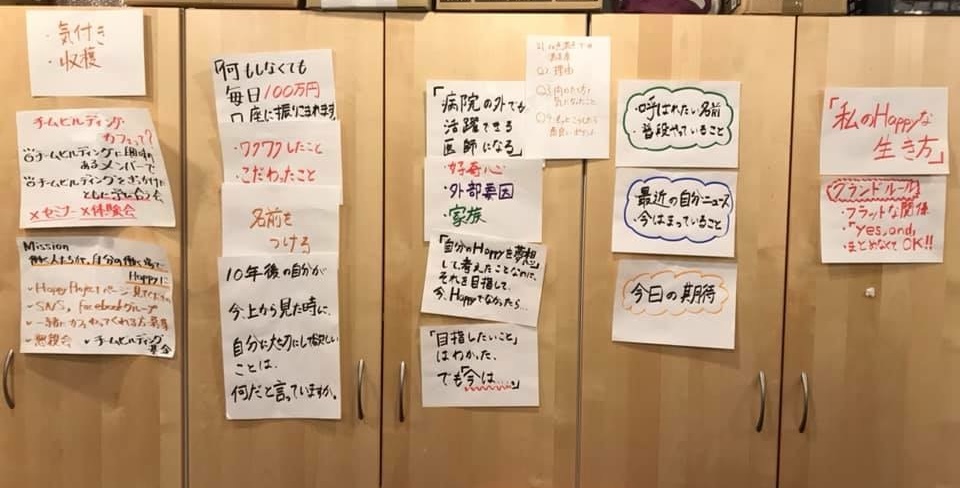 ・気付き
・収穫
チームビルディング
カフェって??
チームビルディングに興味の
あるメンバーで
チームビルディングをきっかけに
ともに学び合う会
×セミナー ×体験会
Mission
働く人たちが、自分の働く場で
Happyに
HappyProjectページ見て
SNS, facebookグループ
一緒にカフェやってくれる方募集
懇親会 チームビルディング
「何もしなくても
毎日100万円
口座に振りこまれます」
・ワクワクしたこと
・こだわったこと
名前を
つけろ
10年後の自分が
今、上から見た時に、
自分に大切にして欲しい
ことは、
何だと言っていますか。
「病院の外でも
活躍できる
医師になる」
・好奇心
・外部要因
・家族
「自分のHappyを夢想
して考えたことなのに、
それを目指して、
今、Happyでなかったら…
「目指したいこと」
はわかった、
でも「今は……」
Q2. 理由
・呼ばれたい名前
・普段やっていること
最近の自分ニュース
今はまっていること
今日の期待
「私のHappyな
生き方」
グランドルール
・フラットな関係
・"yes, and,
・まとめなくてOK!!